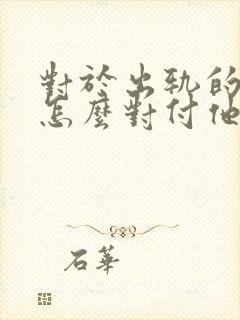 對於出軌的
怎麼對付他
石華